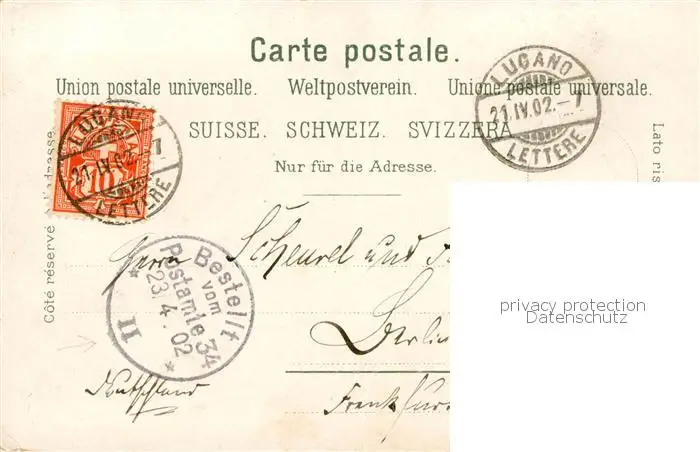 Carte postale.
Union postale universelle. Weltpostverein. Unione postale universale.
SUISSE. SCHWEIZ. SVIZZERA
Nur für die Adresse.
Côté réservé à l'adresse.
Lato ris
LUGANO
21.IV.02.-7
LETTERE
10
LUGANO
21.IV.02.-7
LETTERE
Bestellt
vom
Postamte 34
23/4.02
II
Herrn Scheurel und
Berlin
Frankfur
Deutschland
privacy protection
Datenschutz